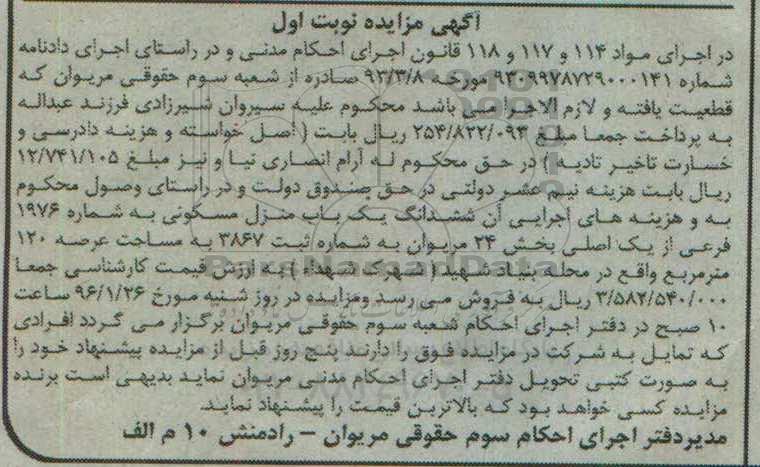 آگهی مزایده نوبت اول
در اجرای مواد ۱۱۴ و ۱۱۷ و ۱۱۸ قانون اجرای احکام مدنی و در راستای اجرای دادنامه
شماره ۹۳۰۹۹۷۸۷۲۹۰۰۰۱۴۱ مورخه ۹۳/۳/۸ صادره از شعبه سوم حقوقی مریوان که
قطعیت یافته و لازم الاجرا می باشد محکوم علیه سیروان شیرزادی فرزند عبداله
به پرداخت جمعا مبلغ ۲۵۴/۸۲۲/۰۹۳ ریال بابت ( اصل خواسته و هزینه دادرسی و
خسارت تاخیر تادیه ) در حق محکوم له آرام انصاری نیا و نیز مبلغ ۱۲/۷۴۱/۱۰۵
ریال بابت هزینه نیم عشر دولتی در حق صندوق دولت و در راستای وصول محکوم
به و هزینه های اجرایی آن ششدانگ یک باب منزل مسکونی به شماره ۱۹۷۶
فرعی از یک اصلی بخش ۲۴ مریوان به شماره ثبت ۳۸۶۷ به مساحت عرصه ۱۲۰
مترمربع واقع در محله بنیاد شهید ( شهرک شهداء ) به ارزش قیمت کارشناسی جمعا
۳/۵۸۲/۵۴۰/۰۰۰ ریال به فروش می رسد ومزایده در روز شنبه مورخ ۹۶/۱/۲۶ ساعت
۱۰ صبح در دفتر اجرای احکام شعبه سوم حقوقی مریوان برگزار می گردد افرادی
که تمایل به شرکت در مزایده فوق را دارند پنج روز قبل از مزایده پیشنهاد خود را
به صورت کتبی تحویل دفتر اجرای احکام مدنی مریوان نماید بدیهی است برنده
مزایده کسی خواهد بود که بالاترین قیمت را پیشنهاد نماید.
مدیردفتر اجرای احکام سوم حقوقی مریوان – رادمنش ۱۰ م الف
ParsNamadData